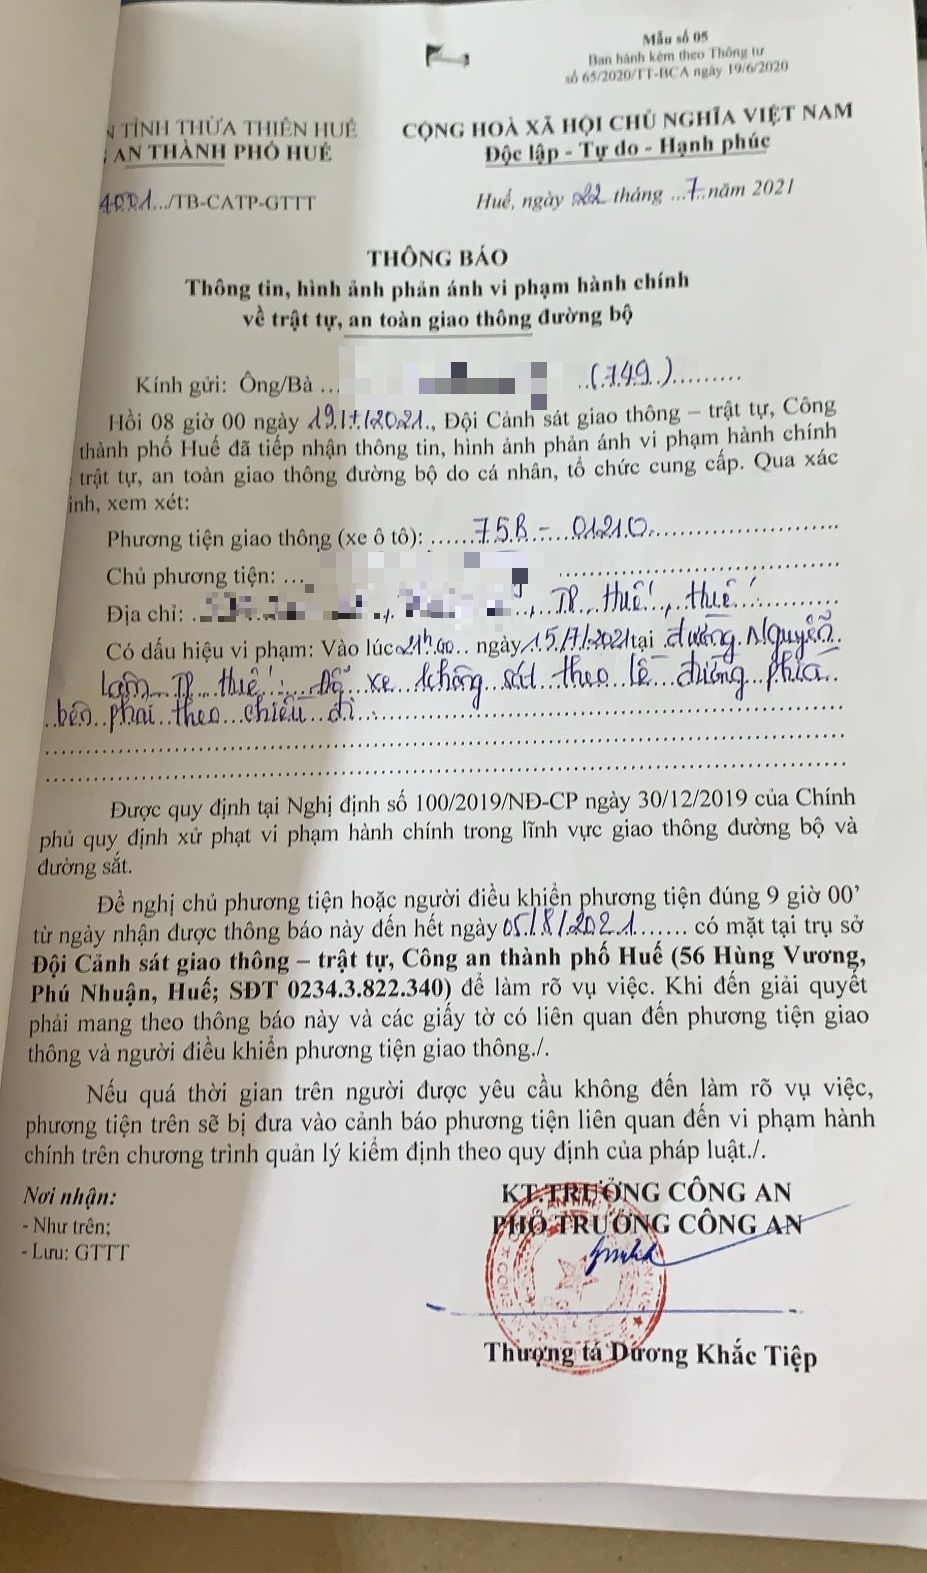 Mẫu số 05
Ban hành kèm theo Thông tư
số 65/2020/TT-BCA ngày 19/6/2020
TỈNH THỪA THIÊN HUẾ
AN THÀNH PHỐ HUẾ
CỘNG HOÀ XÃ HỘI CHỦ NGHĨA VIỆT NAM
Độc lập - Tự do - Hạnh phúc
4001.../TB-CATP-GTTT
Huế, ngày 22 tháng ...7.. năm 2021
THÔNG BÁO
Thông tin, hình ảnh phản ánh vi phạm hành chính
về trật tự, an toàn giao thông đường bộ
Kính gửi: Ông/Bà ... ..(749).........
Hồi 08 giờ 00 ngày 19/7/2021., Đội Cảnh sát giao thông – trật tự, Công
thành phố Huế đã tiếp nhận thông tin, hình ảnh phản ánh vi phạm hành chính
trật tự, an toàn giao thông đường bộ do cá nhân, tổ chức cung cấp. Qua xác
inh, xem xét:
Phương tiện giao thông (xe ô tô): ......75B - 01210..................
Chủ phương tiện: ...
Địa chỉ: ., TP Huế, Huế
Có dấu hiệu vi phạm: Vào lúc 21h00.. ngày 15/7/2021 tại đường Nguyễn
Lam TP Huế: Đỗ xe không sát theo lề đường phía
bên phải theo chiều đi
Được quy định tại Nghị định số 100/2019/NĐ-CP ngày 30/12/2019 của Chính
phủ quy định xử phạt vi phạm hành chính trong lĩnh vực giao thông đường bộ và
đường sắt.
Đề nghị chủ phương tiện hoặc người điều khiển phương tiện đúng 9 giờ 00’
từ ngày nhận được thông báo này đến hết ngày 05/8/2021....... có mặt tại trụ sở
Đội Cảnh sát giao thông – trật tự, Công an thành phố Huế (56 Hùng Vương,
Phú Nhuận, Huế; SĐT 0234.3.822.340) để làm rõ vụ việc. Khi đến giải quyết
phải mang theo thông báo này và các giấy tờ có liên quan đến phương tiện giao
thông và người điều khiển phương tiện giao thông./.
Nếu quá thời gian trên người được yêu cầu không đến làm rõ vụ việc,
phương tiện trên sẽ bị đưa vào cảnh báo phương tiện liên quan đến vi phạm hành
chính trên chương trình quản lý kiểm định theo quy định của pháp luật./.
Nơi nhận:
- Như trên;
- Lưu: GTTT
KT.TRƯỞNG CÔNG AN
PHÓ TRƯỞNG CÔNG AN
Thượng tá Dương Khắc Tiệp